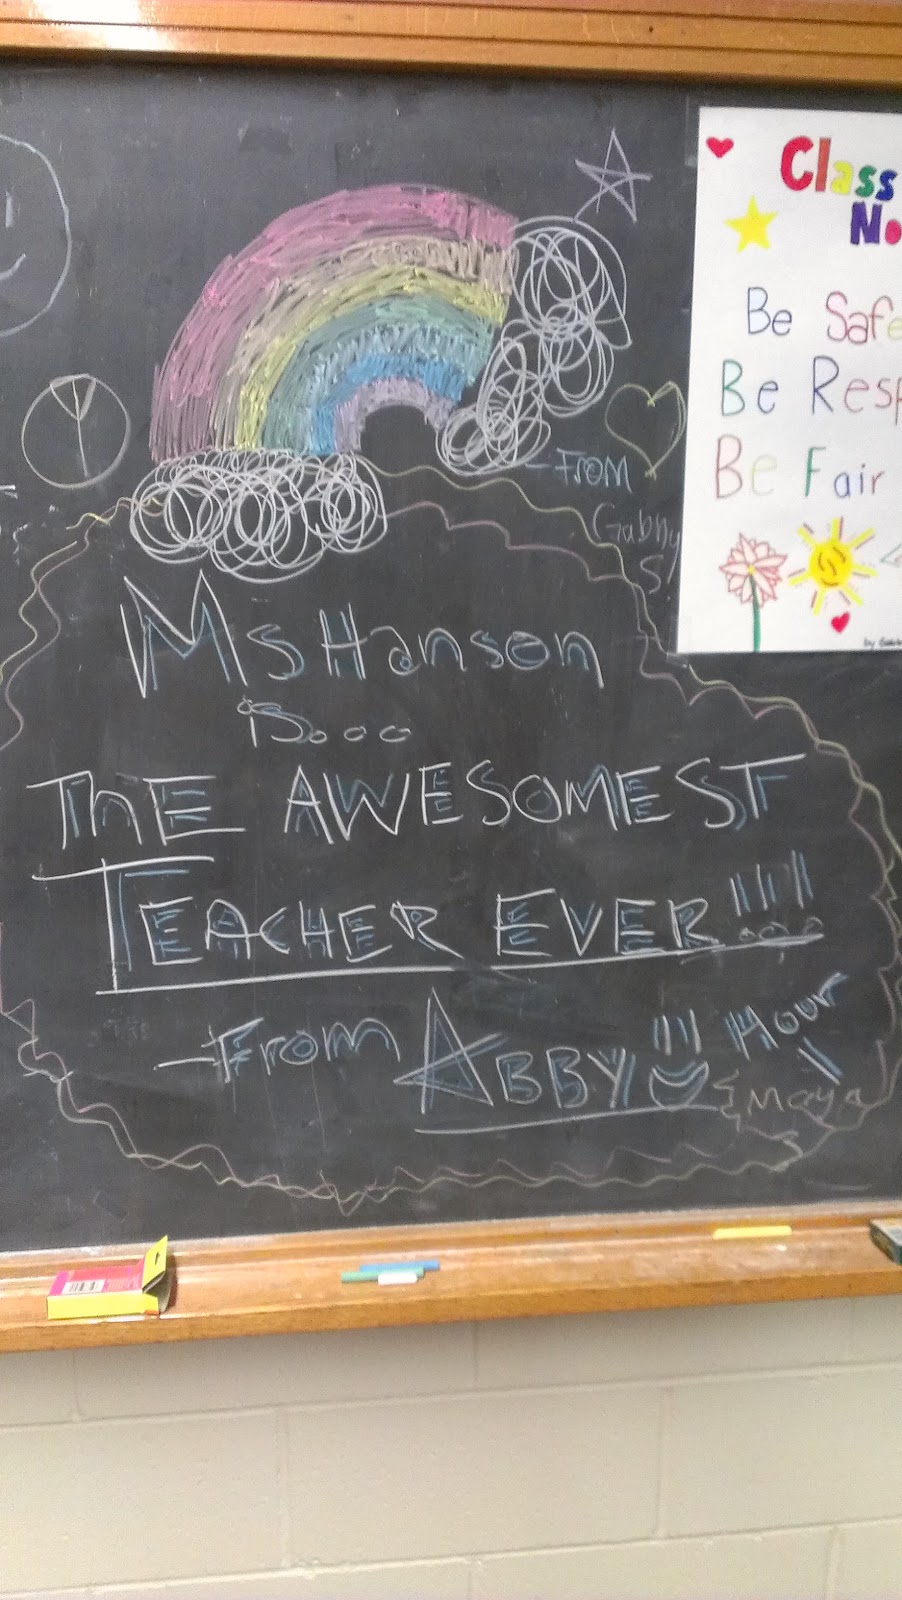 Class
No
Be Safe
Be Resp
Be Fair
-From
Gabby
S
Ms Hanson
is...
ThE AWESOMEST
TEACHER EVER!!!!
-From ABBY!!! Hour 1
{Maya
S